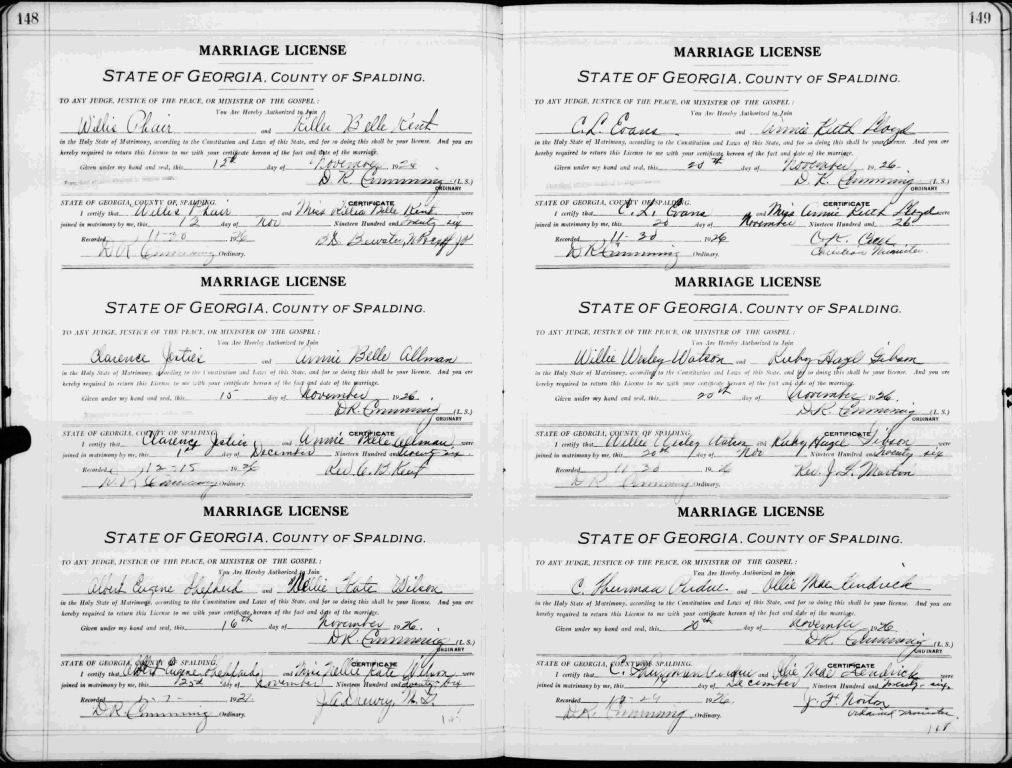 148
MARRIAGE LICENSE
STATE OF GEORGIA, COUNTY OF SPALDING.
TO ANY JUDGE, JUSTICE OF THE PEACE, OR MINISTER OF THE GOSPEL:
You Are Hereby Authorized to Join
Willis Phair and Killer Belle Kent
in the Holy State of Matrimony, according to the Constitution and Laws of this State, and for so doing this shall be your license. And you are
hereby required to return this License to me with your certificate hereon of the fact and date of the marriage.
Given under my hand and seal, this 12th day of November 192
D. R. Cumming (L. S.)
ORDINARY
STATE OF GEORGIA, COUNTY OF SPALDING. CERTIFICATE
I certify that Willis Phair and Miss Belle Kent were
joined in matrimony by me, this 12 day of Nov Nineteen Hundred and twenty six
Recorded 11-30 1926
D R Cumming Ordinary.
MARRIAGE LICENSE
STATE OF GEORGIA, COUNTY OF SPALDING.
TO ANY JUDGE, JUSTICE OF THE PEACE, OR MINISTER OF THE GOSPEL:
You Are Hereby Authorized to Join
Clarence Jesties and Annie Belle Allman
in the Holy State of Matrimony, according to the Constitution and Laws of this State, and for so doing this shall be your license. And you are
hereby required to return this License to me with your certificate hereon of the fact and date of the marriage.
Given under my hand and seal, this 15 day of November 1926.
D. R. Cumming (L. S.)
ORDINARY
STATE OF GEORGIA, COUNTY OF SPALDING. CERTIFICATE
I certify that Clarence Jesties and Annie Belle Allman were
joined in matrimony by me, this 1st day of December Nineteen Hundred and twenty six
Recorded 12-15 1926 Rev. C. B. Kent
D R Cumming Ordinary.
MARRIAGE LICENSE
STATE OF GEORGIA, COUNTY OF SPALDING.
TO ANY JUDGE, JUSTICE OF THE PEACE, OR MINISTER OF THE GOSPEL:
You Are Hereby Authorized to Join
Albert Eugene Shepherd and Nellie Kate Wilson
in the Holy State of Matrimony, according to the Constitution and Laws of this State, and for so doing this shall be your license. And you are
hereby required to return this License to me with your certificate hereon of the fact and date of the marriage.
Given under my hand and seal, this 16th day of November 1926.
D. R. Cumming (L. S.)
ORDINARY
STATE OF GEORGIA, COUNTY OF SPALDING. CERTIFICATE
I certify that Albert Eugene and Miss Nellie Kate Wilson were
joined in matrimony by me, this day of November Nineteen Hundred and twenty six
Recorded 192 J. A. Drewry, M. G.
D. R. Cumming Ordinary.
149
MARRIAGE LICENSE
STATE OF GEORGIA, COUNTY OF SPALDING.
TO ANY JUDGE, JUSTICE OF THE PEACE, OR MINISTER OF THE GOSPEL:
You Are Hereby Authorized to Join
C. L. Evans and Annie Ruth Lloyd
in the Holy State of Matrimony, according to the Constitution and Laws of this State, and for so doing this shall be your license. And you are
hereby required to return this License to me with your certificate hereon of the fact and date of the marriage.
Given under my hand and seal, this 20th day of November 1926.
D. R. Cumming (L. S.)
ORDINARY
STATE OF GEORGIA, COUNTY OF SPALDING. CERTIFICATE
I certify that C. L. Evans and Miss Annie Ruth Lloyd were
joined in matrimony by me, this 20 day of November Nineteen Hundred and 26
Recorded 11-30 1926
D R Cumming Ordinary. Christian Minister
MARRIAGE LICENSE
STATE OF GEORGIA, COUNTY OF SPALDING.
TO ANY JUDGE, JUSTICE OF THE PEACE, OR MINISTER OF THE GOSPEL:
You Are Hereby Authorized to Join
Willie Wesley Watson and Ruby Hazel Gibson
in the Holy State of Matrimony, according to the Constitution and Laws of this State, and for so doing this shall be your license. And you are
hereby required to return this License to me with your certificate hereon of the fact and date of the marriage.
Given under my hand and seal, this 20th day of November 1926.
D. R. Cumming (L. S.)
ORDINARY
STATE OF GEORGIA, COUNTY OF SPALDING. CERTIFICATE
I certify that Willie Wesley Watson and Ruby Hazel Gibson were
joined in matrimony by me, this 20th day of Nov Nineteen Hundred and twenty six
Recorded 11-30 1926 Rev. J. L. Martin
D R Cumming Ordinary.
MARRIAGE LICENSE
STATE OF GEORGIA, COUNTY OF SPALDING.
TO ANY JUDGE, JUSTICE OF THE PEACE, OR MINISTER OF THE GOSPEL:
You Are Hereby Authorized to Join
C. Thurman Perdue and Ollie Mae Kendrick
in the Holy State of Matrimony, according to the Constitution and Laws of this State, and for so doing this shall be your license. And you are
hereby required to return this License to me with your certificate hereon of the fact and date of the marriage.
Given under my hand and seal, this 20th day of November 1926
D. R. Cumming (L. S.)
ORDINARY
STATE OF GEORGIA, COUNTY OF SPALDING. CERTIFICATE
I certify that C. Thurman Perdue and Ollie Mae Kendrick were
joined in matrimony by me, this day of December Nineteen Hundred and twenty-six
Recorded 1926 J. H. Norton
D. R. Cumming Ordinary. ordained minister.